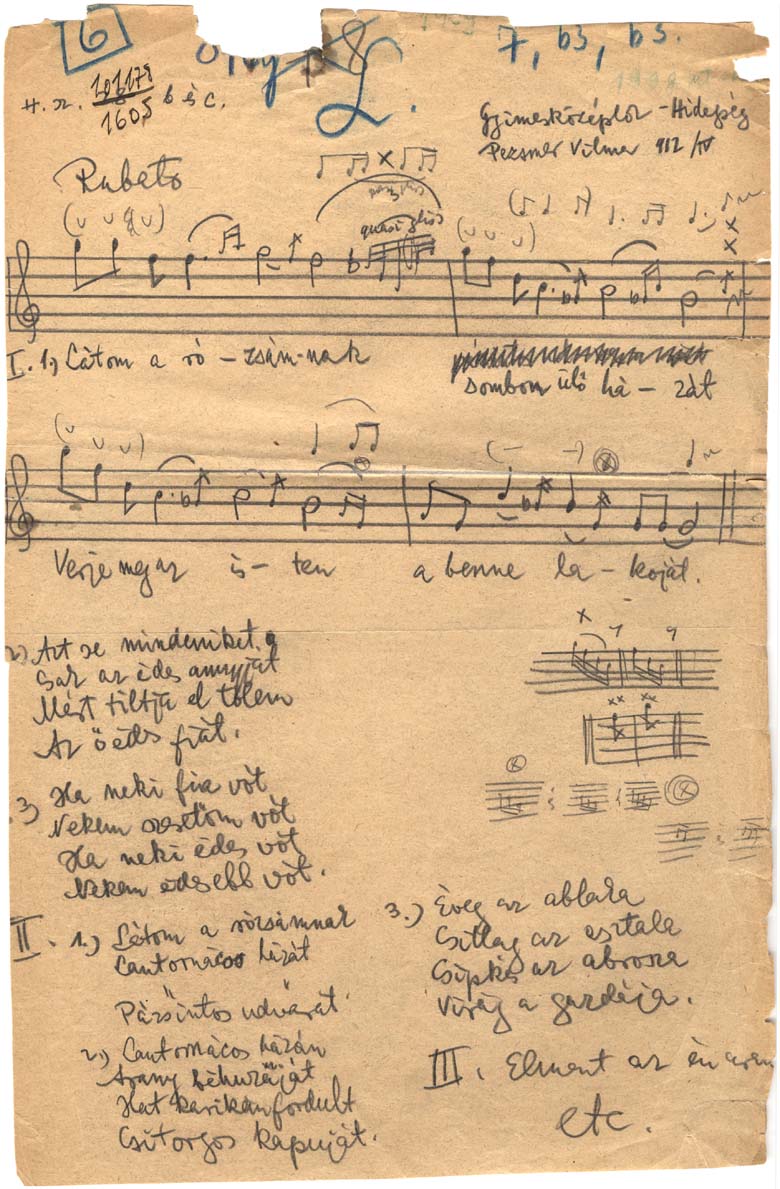 6
7, b3, b3.
L.
H. n. 101178 b és c.
1605
Gyimesközéplok - Hidegség
Pezsmer Vilma 912/IV
Rubato
quasi gliss
I. 1, Látom a ró - zsám-nak
Dombon ülő há - zát
Verje meg az is - ten a benne la - kóját.
2) Azt se mindeniket,
Csak az édes annyját
Mért tiltja el tőlem
Az ő édes fiát.
3) Ha neki fia vót
Nekem szeretőm vót
Ha neki édes vót
Nekem édesebb vót.
II. 1.) Látom a rózsámnak
Cantornácos házát
Pázsintos udvarát.
2.) Cantornácos házán
Arany
Hat karikán fordult
Csitorgós kapuját.
3.) Éveg az ablaka
Csillag az asztala
Csipkés az abrosza
Virág a gazdája.
III. Elment az én
etc.